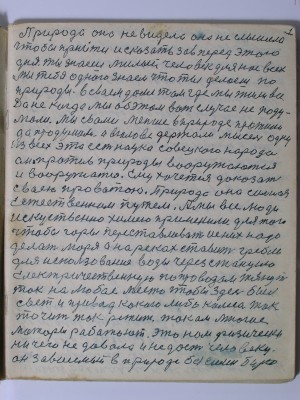 Природа оно не видела оно не слышила
чтобы прийти и сказать зав перед этого
дня ты знаем милый человек для нас всех
мы тебя одного знаем что ты делаеш по
природы. в своем доме том где мы жили вы
Да не когда мы об этом вот случае не поду-
мали. Мы с вами в природе
да продумали. а в голове держали мысли одну
из всех это есть наука советского народа
он против природы вооружается
и вооружила. Ему хочется доказать
свою правотою. Природа она сильная
Естественным путем. А мы все люди
искуственно химию применили для того
чтобы горы переставлять из них надо
делать моря а на реках ставит гребли
для использования воды через станцию
Електрическтвенную по проводам тянут
ток на любое место чтобы здесь был
свет и привод какого либо колеса ток
точит ток режит током многие
моторы работают. Это нам физически
ничего не давала и не даст человеку.
он зависимый в природе